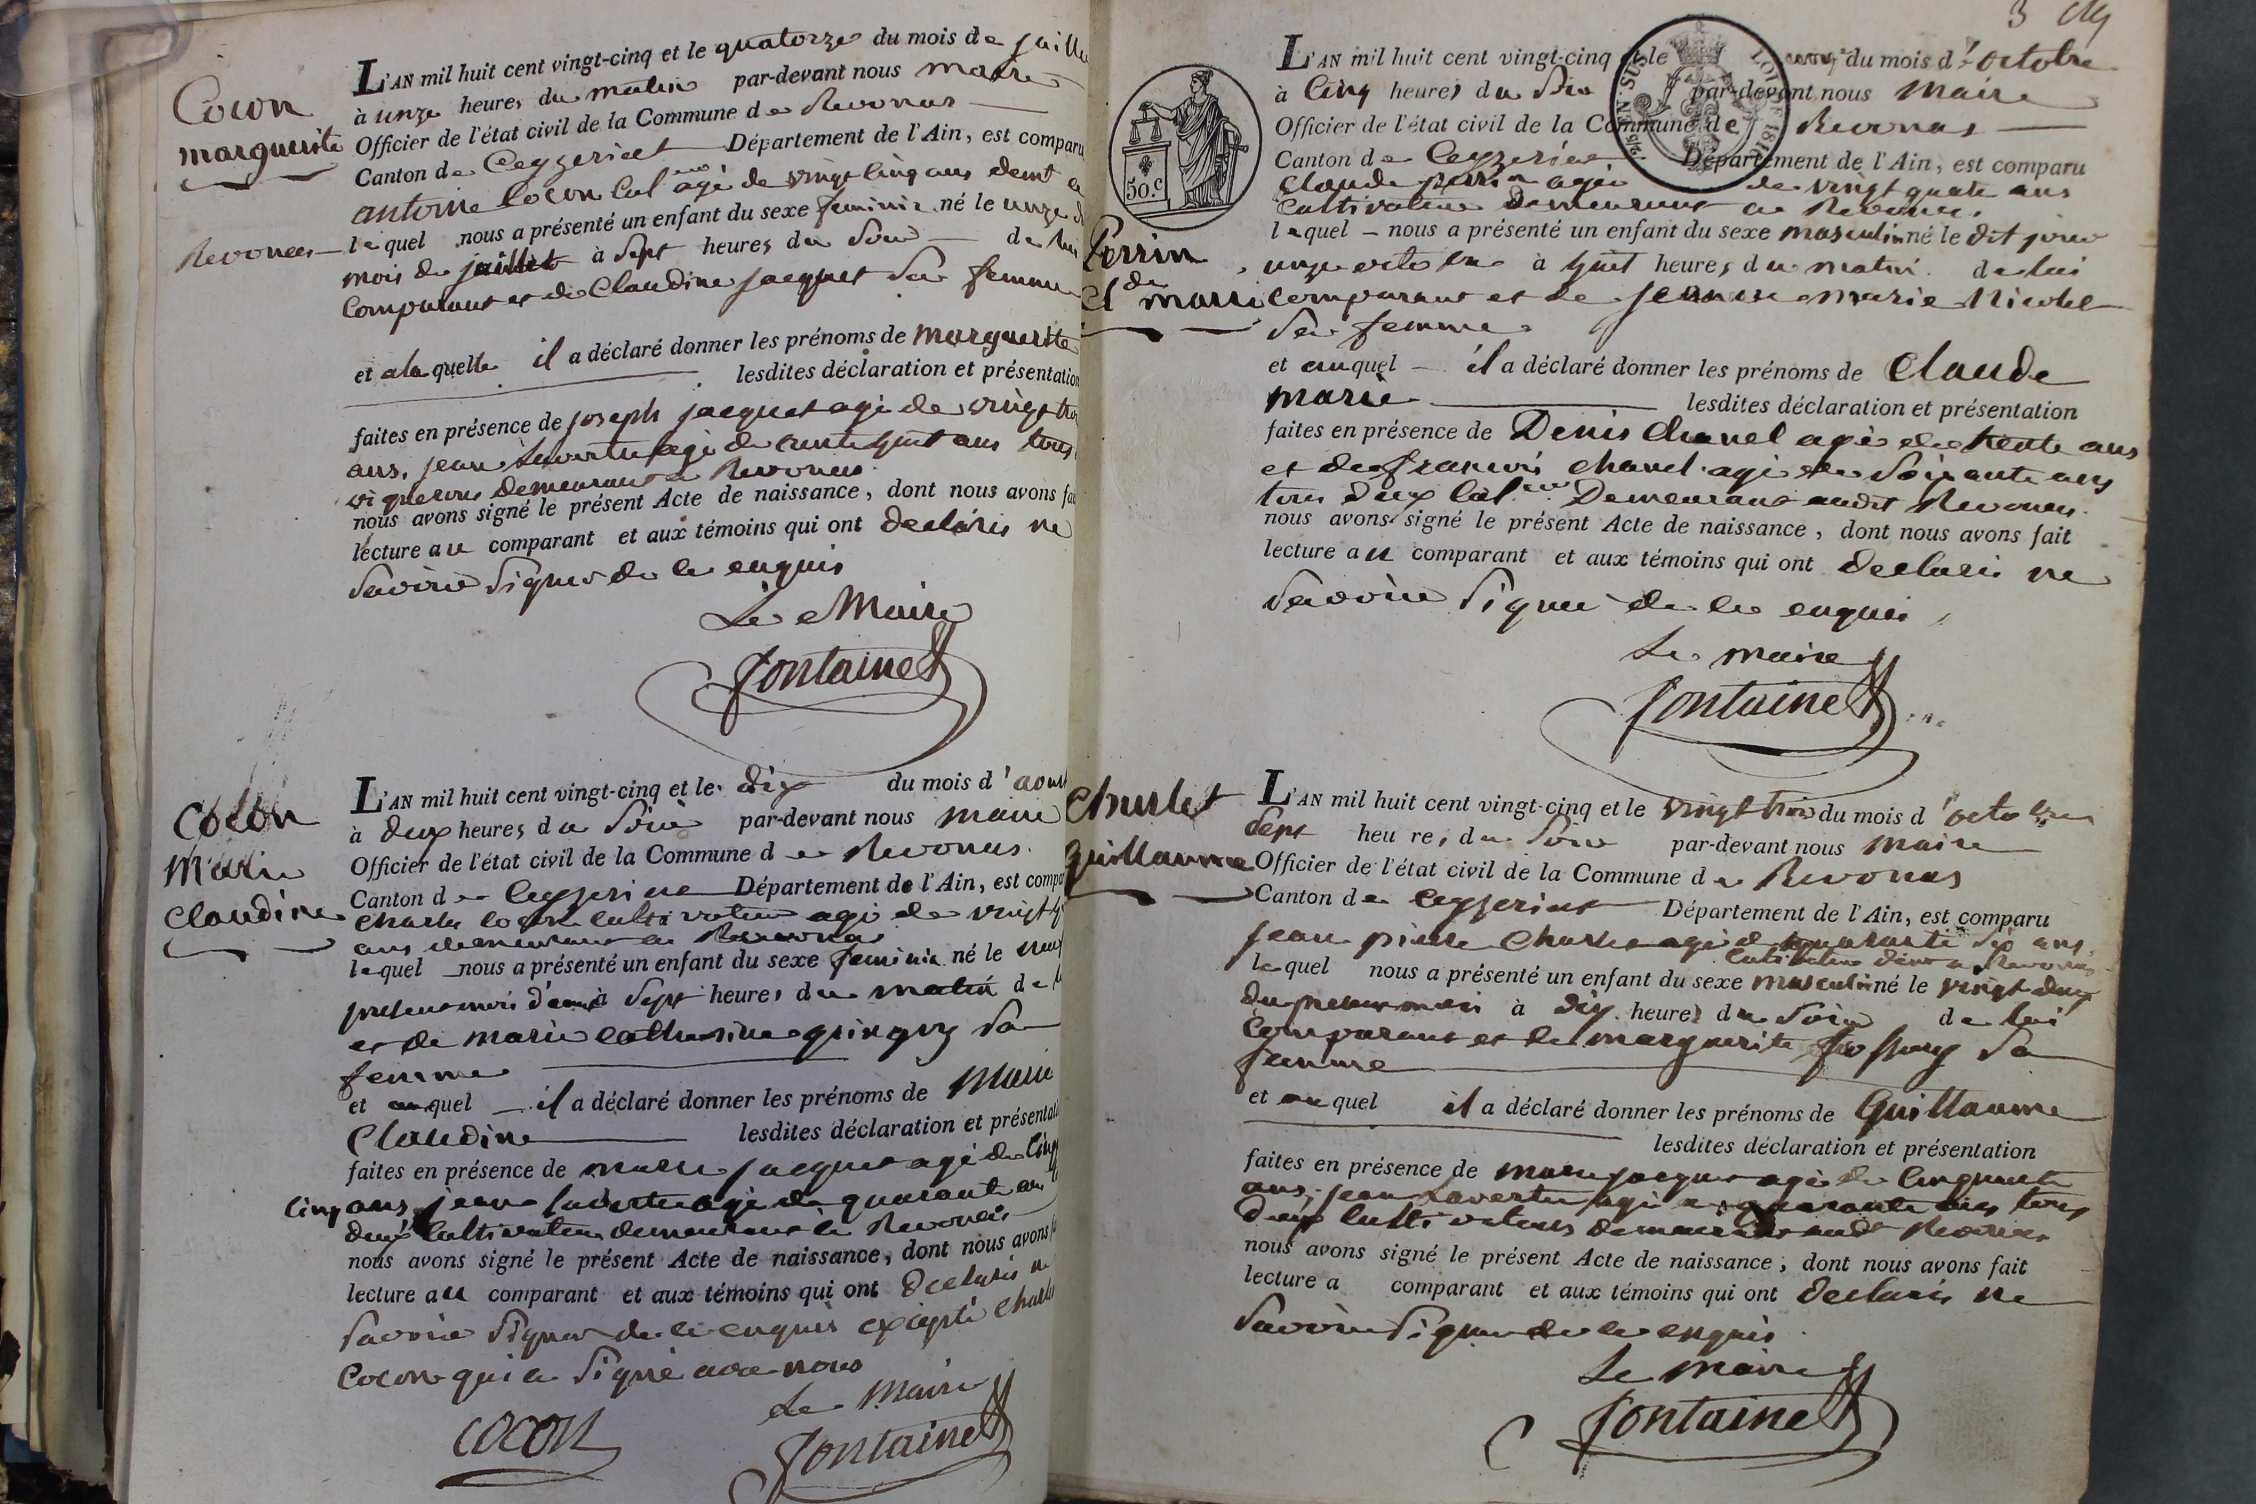 Cocon
marguerite
Revonas
L'AN mil huit cent vingt-cinq et le quatorze du mois de juille
à unze heures du matin par-devant nous maire
Officier de l'état civil de la Commune de Revonas
Canton de Ceyzeriat Département de l'Ain, est comparu
antoine Cocon Cul agé de vingt cinq ans demt a
lequel nous a présenté un enfant du sexe feminin né le unze d
mois de juillet à sept heures du soir de lui
Comparant et de Claudine jacquet sa femme
et a la quelle il a déclaré donner les prénoms de marguerite
lesdites déclaration et présentation
faites en présence de joseph jacquet agé de vingt troi
ans, jean Laverte agé de trente huit ans tous
vignerons demeurant a Revonas
nous avons signé le présent Acte de naissance, dont nous avons fai
lecture au comparant et aux témoins qui ont declarés ne
savoir signer de ce enquis
Le Maire
fontaine
Cocon
Marie
Claudine
L'AN mil huit cent vingt-cinq et le dix du mois d'aoust
à deux heures du soir par-devant nous maire
Officier de l'état civil de la Commune de Revonas
Canton de Ceyzeriat Département de l'Ain, est compa
Charles Cocon cultivateur agé de vingt
ans demeurant a Revonas
lequel nous a présenté un enfant du sexe feminin né le neuf
present mois d'aoust à sept heures du matin de
et de marie catherine quinquy sa
femme
et auquel il a déclaré donner les prénoms de Marie
Claudine lesdites déclaration et présentati
faites en présence de marie jacquet agé de cinq
cinq ans, jean Laverte agé de quarante an
deux cultivateurs demeurant à Revonas
nous avons signé le présent Acte de naissance, dont nous avons
lecture au comparant et aux témoins qui ont declarés ne
savoir signer de ce enquis excepté Charles
Cocon qui a signé avec nous
Le Maire
COCON fontaine
3
50.c
LOI DE 1816
Perrin
Cl de marie
L'AN mil huit cent vingt-cinq et le du mois d'octobre
à cinq heures du soir par-devant nous maire
Officier de l'état civil de la Commune de Revonas
Canton de Ceyzeriat Département de l'Ain, est comparu
Claude perrin agé de vingt quatre ans
cultivateur demeurant a Revonas
lequel nous a présenté un enfant du sexe masculin né le dit jour
unze octobre à huit heures du matin de lui
comparant et de jeanne marie Nicolet
sa femme
et auquel il a déclaré donner les prénoms de Claude
marie lesdites déclaration et présentation
faites en présence de Denis Chanel agé de trente ans
et de francois chanel agé de soixante ans
tous deux Cul Demeurant audit Revonas
nous avons signé le présent Acte de naissance, dont nous avons fait
lecture au comparant et aux témoins qui ont declarés ne
savoir signer de ce enquis
Le maire
fontaine
Charlet
guillaume
L'AN mil huit cent vingt-cinq et le vingt trois du mois d'octobre
sept heures du soir par-devant nous maire
Officier de l'état civil de la Commune de Revonas
Canton de Ceyzeriat Département de l'Ain, est comparu
jean pierre Charlet agé de quarante six ans
cultivateur demt a Revonas
lequel nous a présenté un enfant du sexe masculin né le vingt deux
du present mois à dix heures du soir de lui
Comparant et de marguerite sa
femme
et auquel il a déclaré donner les prénoms de Guillaume
lesdites déclaration et présentation
faites en présence de marie jacquet agé de cinquante
ans, jean Laverte agé de quarante ans tous
deux cultivateurs demeurant audt Revonas
nous avons signé le présent Acte de naissance, dont nous avons fait
lecture a comparant et aux témoins qui ont declarés ne
savoir signer de ce enquis
Le maire
fontaine